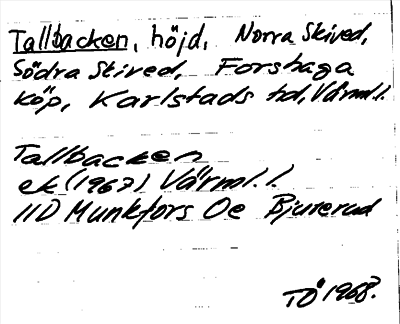 Tallbacken, höjd, Norra Skived,
Södra Skived, Forshaga
köp, Karlstads hd, Värml.l.
Tallbacken
ek (1967) Värml.l.
11D Munkfors Oe Bjuterud
TÖ 1968.